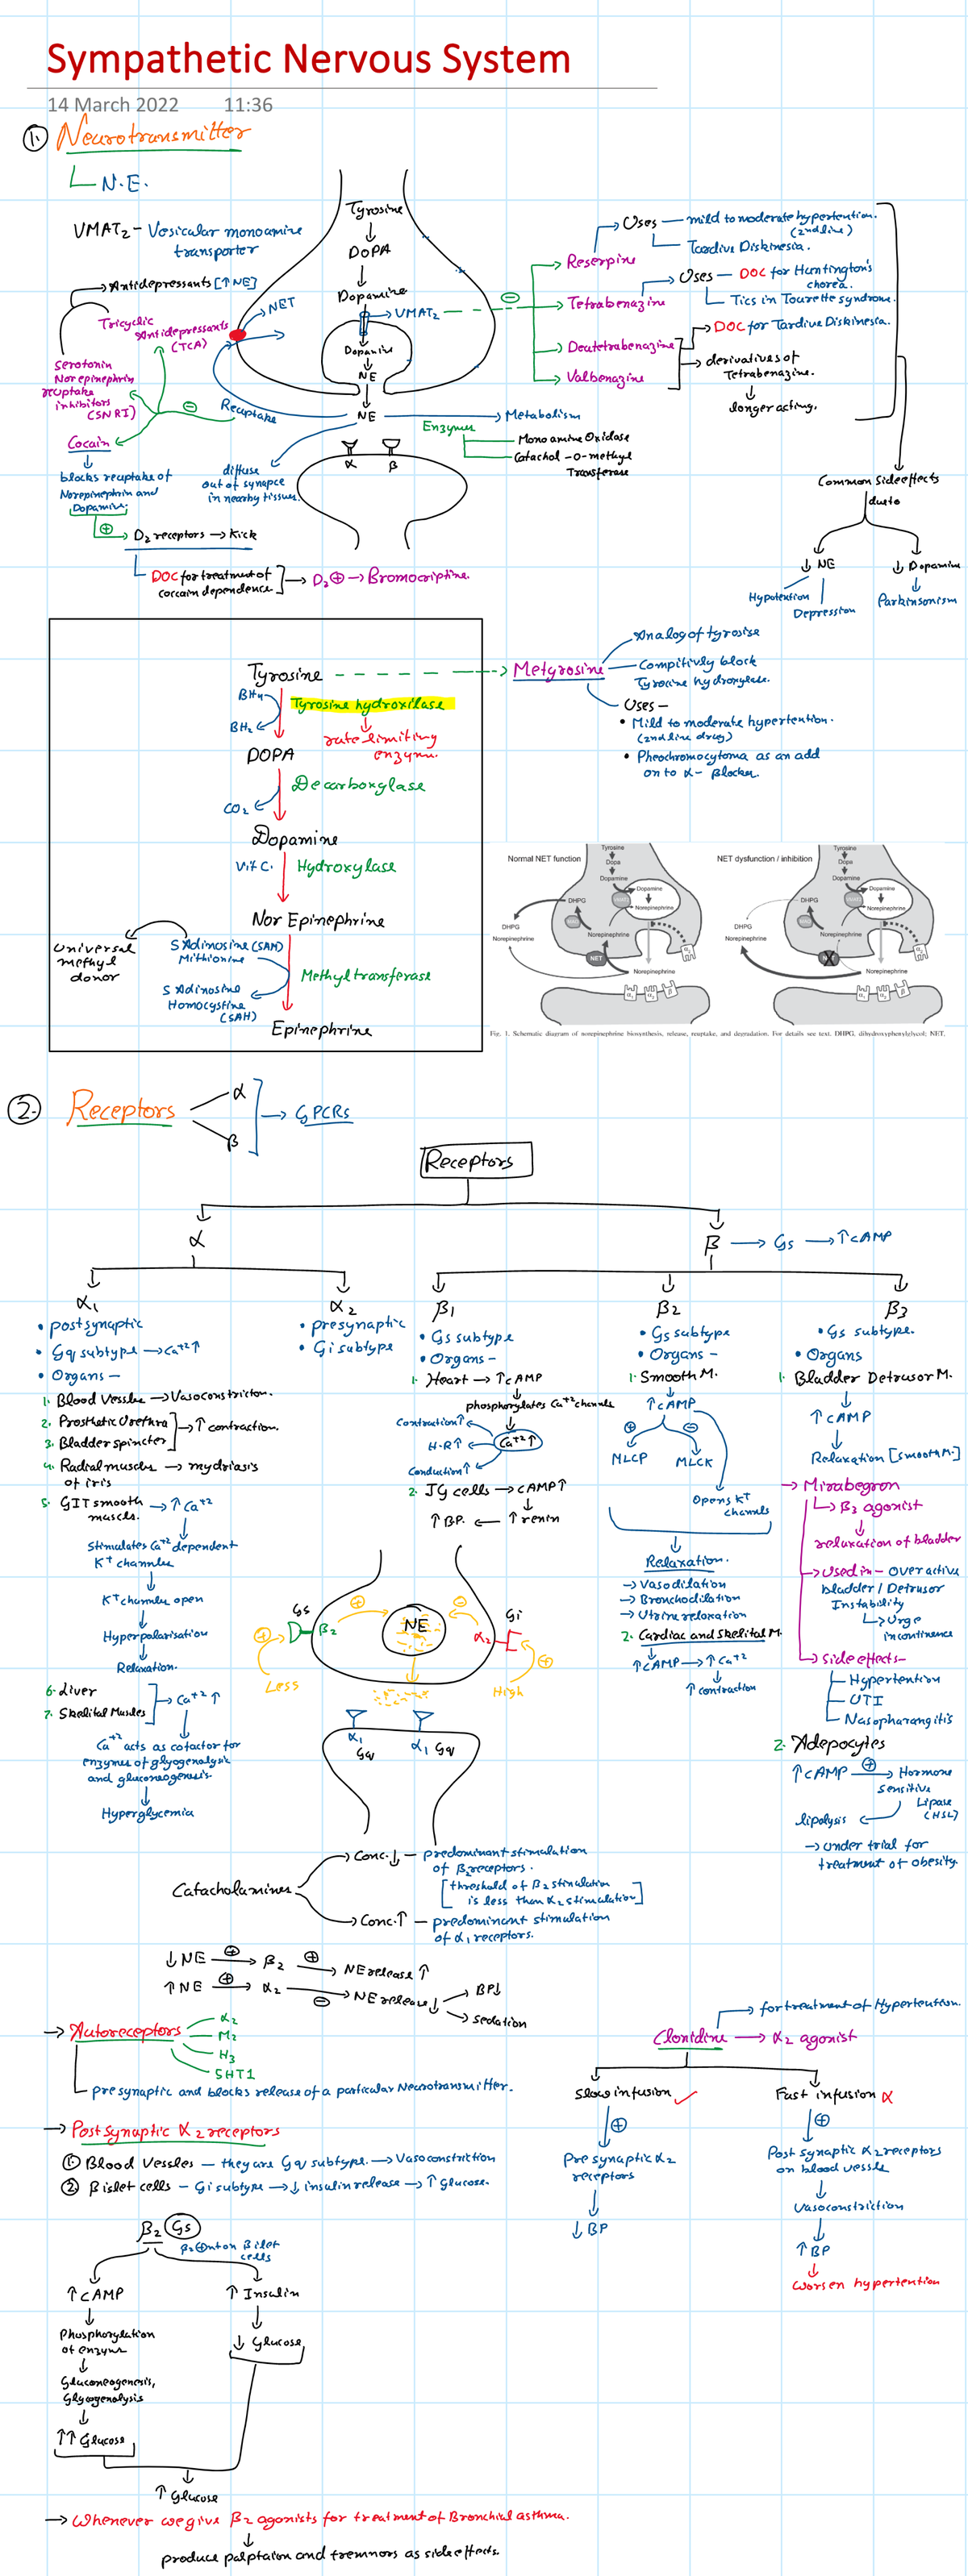 Sympathetic Nervous System
14 March 2022 11:36
1. Neurotransmitter
N.E.
VMAT2 - Vesicular monoamine
transporter
Antidepressants [↑NE]
Tricyclic
Antidepressants
(TCA)
Serotonin
Norepinephrin
reuptake
inhibitors
(SNRI)
Cocain
blocks reuptake of
Norepinephrin and
Dopamine.
⊕ → D2 receptors → Kick
DOC for treatment of
coccain dependence → D2 ⊕ → Bromocriptine.
Tyrosine
DOPA
Dopamine
VMAT2
NET
Dopamine
NE
NE
Reuptake
⊖
Metabolism
Enzymes
Mono amine Oxidase
Catachol -o-methyl
Transferase
diffuse
out of synapce
in nearby tissues.
α β
⊖
Reserpine
Uses - mild to moderate hypertention.
(2nd line)
Tardive Diskinesia.
Tetrabenazine
Uses - DOC for Huntington's
chorea.
Tics in Tourette syndrome.
Deutetrabenazine
Valbenazine
DOC for Tardive Diskinesia.
derivatives of
Tetrabenazine.
longer acting.
Common Sideeffects
dueto
↓ NE
Hypotention
Depression
↓ Dopamine
Parkinsonism
Tyrosine
BH4
BH2
Tyrosine hydroxilase
rate limiting
enzyme.
DOPA
Decarboxylase
CO2
Dopamine
Vit C.
Hydroxylase
Nor Epinephrine
Universal
methyl
donor
S Adinosine (SAM)
Mithionine
S Adinosine
Homocystine
(SAH)
Methyl transferase
Epinephrine
Metyrosine
Analog of tyrosise
Compitivly block
Tyrocine hydroxylase.
Uses -
• Mild to moderate hypertention.
(2nd line drug)
• Pheochromocytoma as an add
on to α- Blocker.
Normal NET function
Tyrosine
Dopa
Dopamine
Dopamine
Norepinephrine
DHPG
DHPG
Norepinephrine
Norepinephrine
NET
Norepinephrine
NET dysfunction / inhibition
Tyrosine
Dopa
Dopamine
Dopamine
Norepinephrine
DHPG
DHPG
Norepinephrine
Norepinephrine
Norepinephrine
Fig. 1. Schematic diagram of norepinephrine biosynthesis, release, reuptake, and degradation. For details see text. DHPG, dihydroxyphenylglycol; NET,
2. Receptors
α
β
→ GPCRs
Receptors
α
β → Gs → ↑cAMP
α1
• postsynaptic
• Gq subtype → Ca+2↑
• Organs -
1. Blood Vessles → Vasoconstriction.
2. Prosthetic Urethra
3. Bladder spincter
→ ↑ contraction.
4. Radial muscles → mydriasis
of iris
5. GIT smooth → ↑ Ca+2
muscles.
Stimulates Ca+2 dependent
K+ channles
K+ channles open
Hyperpolarisation
Relaxation.
6. Liver
7. Skelital Muscles
→ Ca+2 ↑
Ca+2 acts as cofactor for
enzymes of glyogenalysis
and gluconeogenesis.
Hyperglycemia
α2
• presynaptic
• Gi subtype
β1
• Gs subtype
• Organs -
1. Heart → ↑cAMP
phosphorylates Ca+2 channels
Ca+2 ↑
Contraction↑
H.R↑
Conduction↑
2. JG cells → cAMP↑
↑ BP. ← ↑ renin
β2
• Gs subtype
• Organs -
1. Smooth M.
↑cAMP
⊕ ⊖
MLCP MLCK
Opens K+
channels
Relaxation.
→ Vasodilation
→ Bronchodilation
→ Utrine reloxation
2. Cardiac and Skelital M.
↑cAMP → ↑ Ca+2
↑ contraction
β3
• Gs subtype.
• Organs
1. Bladder Detrusor M.
↑cAMP
Relaxation [Smooth M.]
→ Mirabegron
β3 agonist
relaxation of bladder
→ Used in - Over active
bladder / Detrusor
Instability
Urge
incontinence
→ Side effects-
Hypertention
UTI
Nasopharangitis
2. Adepocytes
↑cAMP ⊕ → Hormone
Sensitive
Lipase
(HSL)
lipolysis
→ Under trial for
treatment of obesity
Gs
β2
⊕
NE
⊖
α2
Gi
⊕
Less
High
⊕
α1 α1
Gq Gq
Catacholamines
Conc.↓ - predominant stimulation
of β2 receptors.
[threshold of β2 stimulation
is less than α2 stimulation]
Conc.↑ - predominant stimulation
of α1 receptors.
↓NE ⊕ → β2 ⊕ → NE release ↑
↑NE ⊕ → α2 ⊖ → NE release↓
BP↓
Sedation
→ Autoreceptors
α2
M2
H3
5HT1
presynaptic and blocks release of a particular Neurotransmitter.
→ Post synaptic α2 receptors
1. Blood Vessles - they are Gq subtype. → Vasoconstriction
2. β islet cells - Gi subtype → ↓ insulin release → ↑ Glucose.
Clonidine → α2 agonist
for treatment of Hypertention.
Slow infusion ✓
⊕
Pre synaptic α2
receptors
↓ BP
Fast infusion ✗
⊕
Post synaptic α2 receptors
on blood vessle
Vasoconstriction
↑ BP
Worsen hypertention
β2 Gs
β2 ⊕nt on β ilet
cells
↑cAMP
Phosphorylation
of enzyme
Gluconeogenesis,
Glycogenolysis
↑↑ Glucose
↑ Insulin
↓ Glucose
↑ Glucose
→ Whenever we give β2 agonists for treatment of Bronchial asthma.
produce palptaion and tremnors as side effects.